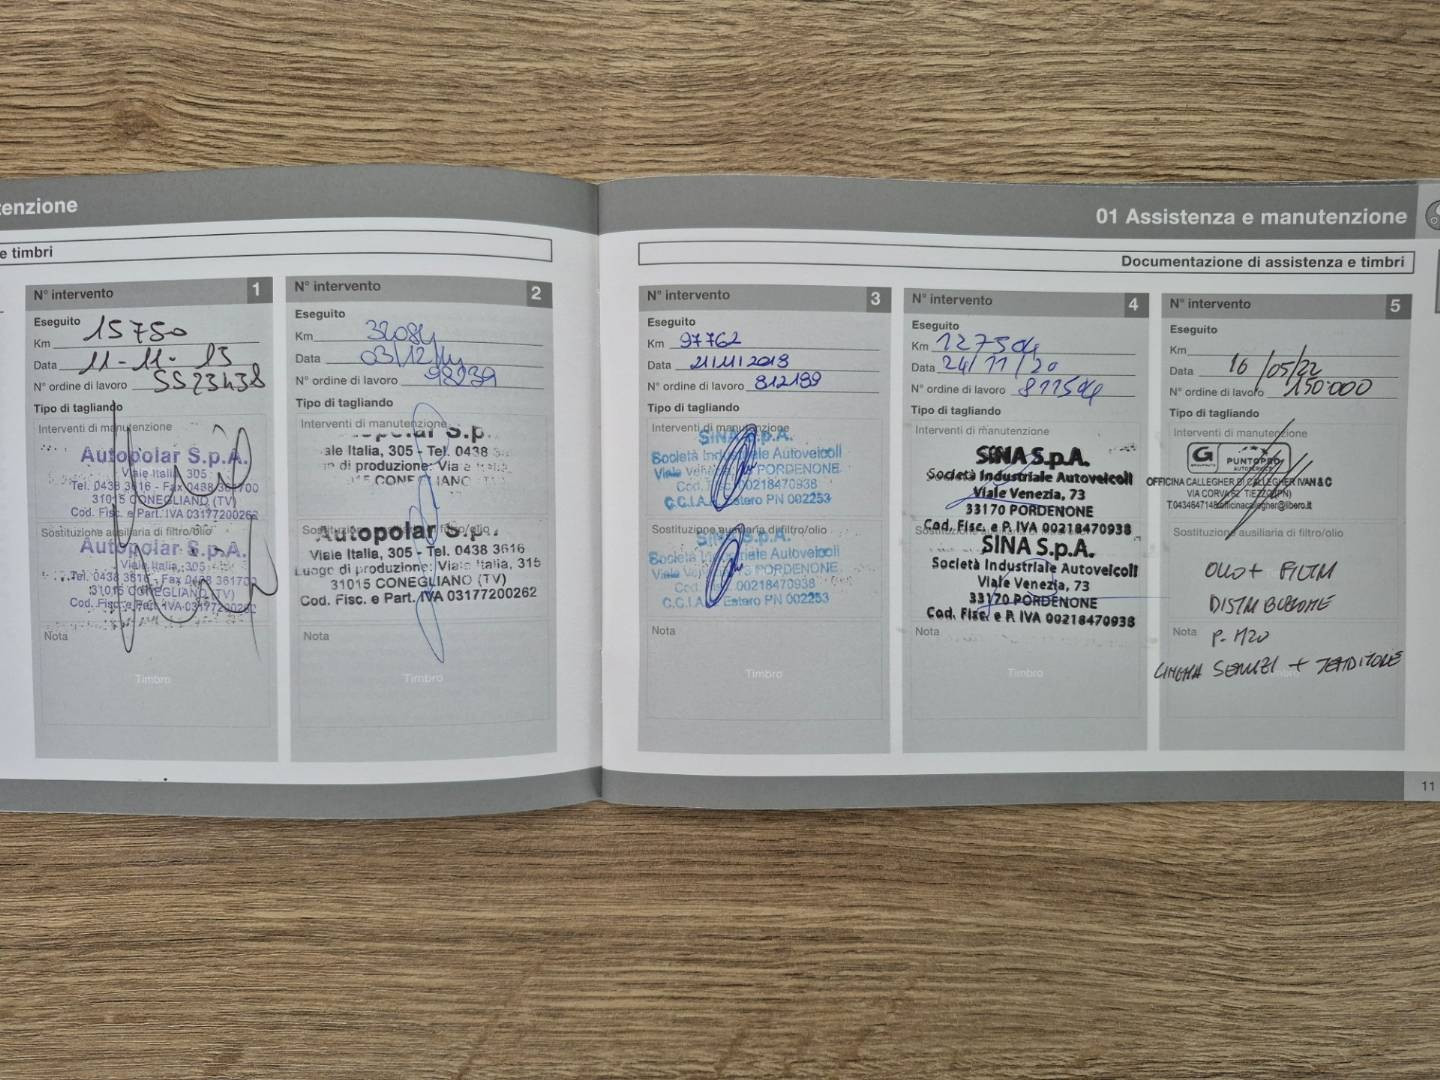 tenzione
e timbri
N° intervento 1
Eseguito
Km 15750
Data 11-11-13
N° ordine di lavoro SS23438
Tipo di tagliando
Interventi di manutenzione
Autopolar S.p.A.
Viale Italia, 305
Tel. 0438 3616 - Fax 0438 361700
31015 CONEGLIANO (TV)
Cod. Fisc. e Part. IVA 03177200262
Sostituzione ausiliaria di filtro/olio
Autopolar S.p.A.
Viale Italia, 305
Tel. 0438 3616 - Fax 0438 361700
31015 CONEGLIANO (TV)
Cod. Fisc. e Part. IVA 03177200262
Nota
Timbro
N° intervento 2
Eseguito
Km 32084
Data 03/12/14
N° ordine di lavoro 98239
Tipo di tagliando
Interventi di manutenzione
S.p.
ale Italia, 305 - Tel. 0438
di produzione: Via
CONEGLIANO
Sostituzione filtro/olio
Autopolar S.p.
Viale Italia, 305 - Tel. 0438 3616
Luogo di produzione: Viale Italia, 315
31015 CONEGLIANO (TV)
Cod. Fisc. e Part. IVA 03177200262
Nota
Timbro
01 Assistenza e manutenzione
Documentazione di assistenza e timbri
N° intervento 3
Eseguito
Km 97762
Data 21.11.2018
N° ordine di lavoro 812189
Tipo di tagliando
Interventi di manutenzione
SINA S.p.A.
Società Industriale Autoveicoli
Viale PORDENONE
Cod. 00218470938
C.C.I.A. Estero PN 002253
Sostituzione ausiliaria di filtro/olio
SINA S.p.A.
Società Industriale Autoveicoli
Viale PORDENONE
Cod. 00218470938
C.C.I.A. Estero PN 002253
Nota
Timbro
N° intervento 4
Eseguito
Km 127504
Data 24/11/20
N° ordine di lavoro 877504
Tipo di tagliando
Interventi di manutenzione
SINA S.p.A.
Società Industriale Autoveicoli
Viale Venezia, 73
33170 PORDENONE
Cod. Fisc. e P. IVA 00218470938
SINA S.p.A.
Società Industriale Autoveicoli
Viale Venezia, 73
33170 PORDENONE
Cod. Fisc. e P. IVA 00218470938
Nota
Timbro
N° intervento 5
Eseguito
Km
Data 16/05/22
N° ordine di lavoro 150.000
Tipo di tagliando
Interventi di manutenzione
G PUNTOPRO
OFFICINA CALLEGHER DI CALLEGHER IVAN & C
VIA CORVA
Sostituzione ausiliaria di filtro/olio
OLIO + FILTRI
DISTRIBUZIONE
Nota P. H2O
CINGHIA SERVIZI + TENDITORE
11